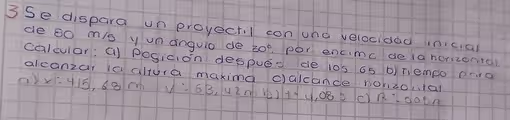 3 Se dispara un proyectil con una velocidad inicial
de 80 m/s y un angulo de 30°. por encima de la horizontal
calcular: a) Posición después de los 6s b) Tiempo para
alcanzar la altura maxima c) alcance horizontal
a) x: 415,68 m y: 63,42m b) t: 4,08s c)